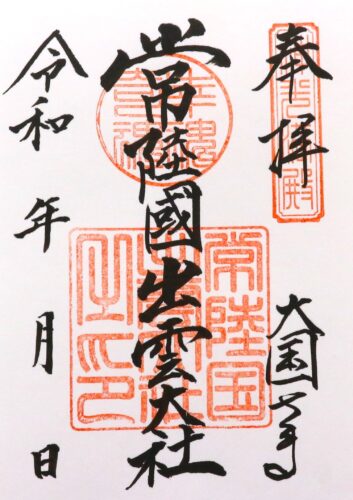 奉拝
大国
常陸國出雲大社
令和 年 月 日
常陸国
出雲大社
之印